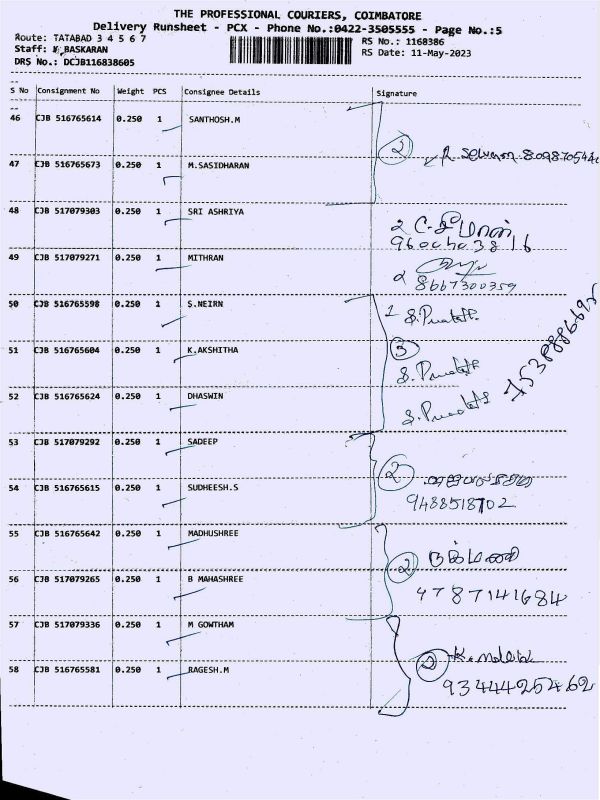 THE PROFESSIONAL COURIERS, COIMBATORE
Delivery Runsheet - PCX - Phone No.:0422-3505555 - Page No.:5
Route: TATABAD 3 4 5 6 7
RS No.: 1168386
Staff: BASKARAN
RS Date: 11-May-2023
DRS No.: DCJB116838605
S No Consignment No Weight PCS Consignee Details Signature
46 CJB 516765614 0.250 1 SANTHOSH.M
2
47 CJB 516765673 0.250 1 M.SASIDHARAN
48 CJB 517079303 0.250 1 SRI ASHRIYA
9600703816
49 CJB 517079271 0.250 1 MITHRAN
8667300359
50 CJB 516765598 0.250 1 S.NEIRN
1
51 CJB 516765604 0.250 1 K.AKSHITHA
3
52 CJB 516765624 0.250 1 DHASWIN
53 CJB 517079292 0.250 1 SADEEP
2
54 CJB 516765615 0.250 1 SUDHEESH.S
9488518702
55 CJB 516765642 0.250 1 MADHUSHREE
2 ருக்மணி
56 CJB 517079265 0.250 1 B MAHASHREE
9787141684
57 CJB 517079336 0.250 1 M GOWTHAM
2
58 CJB 516765581 0.250 1 RAGESH.M
9344425462